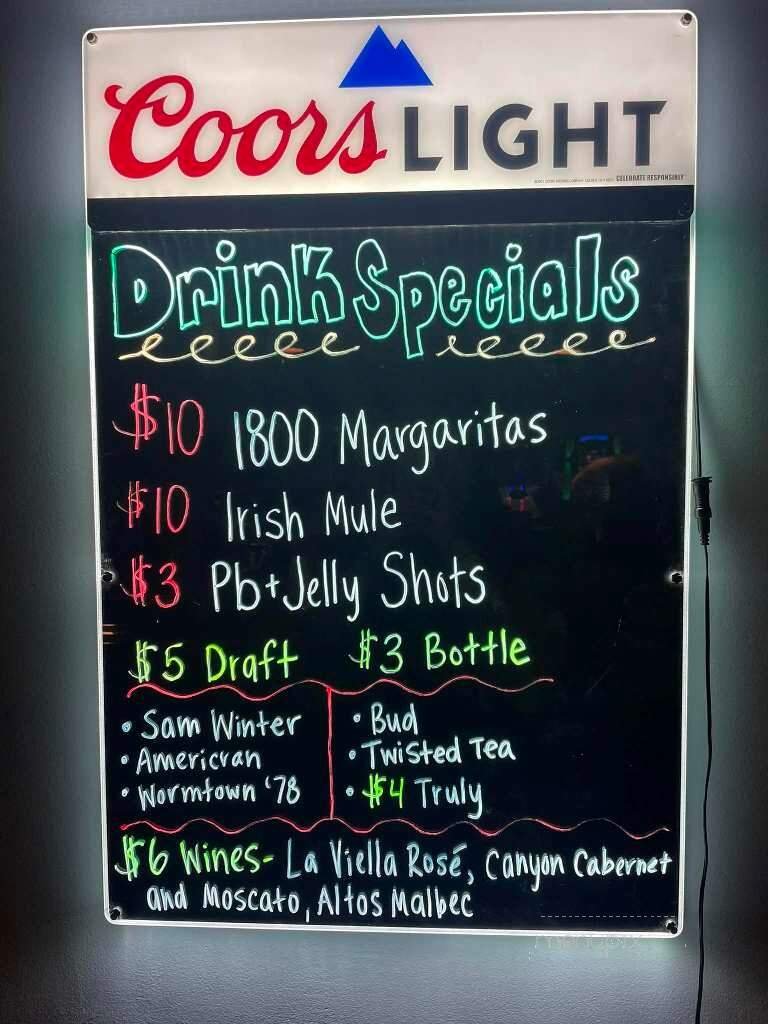 Coors LIGHT
CELEBRATE RESPONSIBLY
Drink Specials
$10 1800 Margaritas
$10 Irish Mule
$3 Pb+Jelly Shots
$5 Draft $3 Bottle
• Sam Winter
• Americran
• Wormtown '78
• Bud
• Twisted Tea
• $4 Truly
$6 Wines- La Viella Rosé, Canyon Cabernet
and Moscato, Altos Malbec